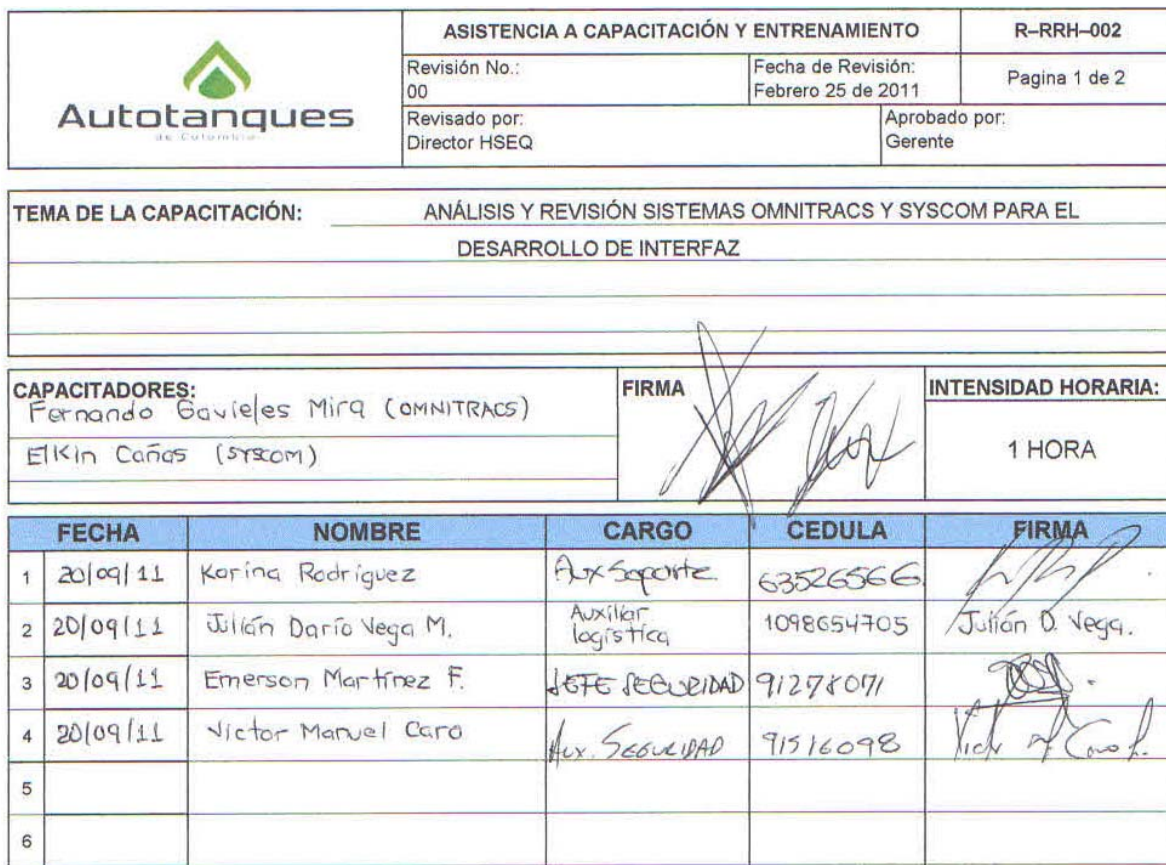 Autotanques
de Colombia
ASISTENCIA A CAPACITACIÓN Y ENTRENAMIENTO
R–RRH–002
Revisión No.:
00
Fecha de Revisión:
Febrero 25 de 2011
Pagina 1 de 2
Revisado por:
Director HSEQ
Aprobado por:
Gerente
TEMA DE LA CAPACITACIÓN: ANÁLISIS Y REVISIÓN SISTEMAS OMNITRACS Y SYSCOM PARA EL
DESARROLLO DE INTERFAZ
CAPACITADORES:
Fernando Mira (OMNITRACS)
Elkin Cañas (SYSCOM)
FIRMA
INTENSIDAD HORARIA:
1 HORA
FECHA NOMBRE CARGO CEDULA FIRMA
1 20/09/11 Karina Rodríguez Aux Soporte 63526566
2 20/09/11 Julián Darío Vega M. Auxiliar logística 1098654705 Julián D. Vega.
3 20/09/11 Emerson Martínez F. JEFE SEGURIDAD 91278071
4 20/09/11 Victor Manuel Caro Aux. SEGURIDAD 91516098
5
6